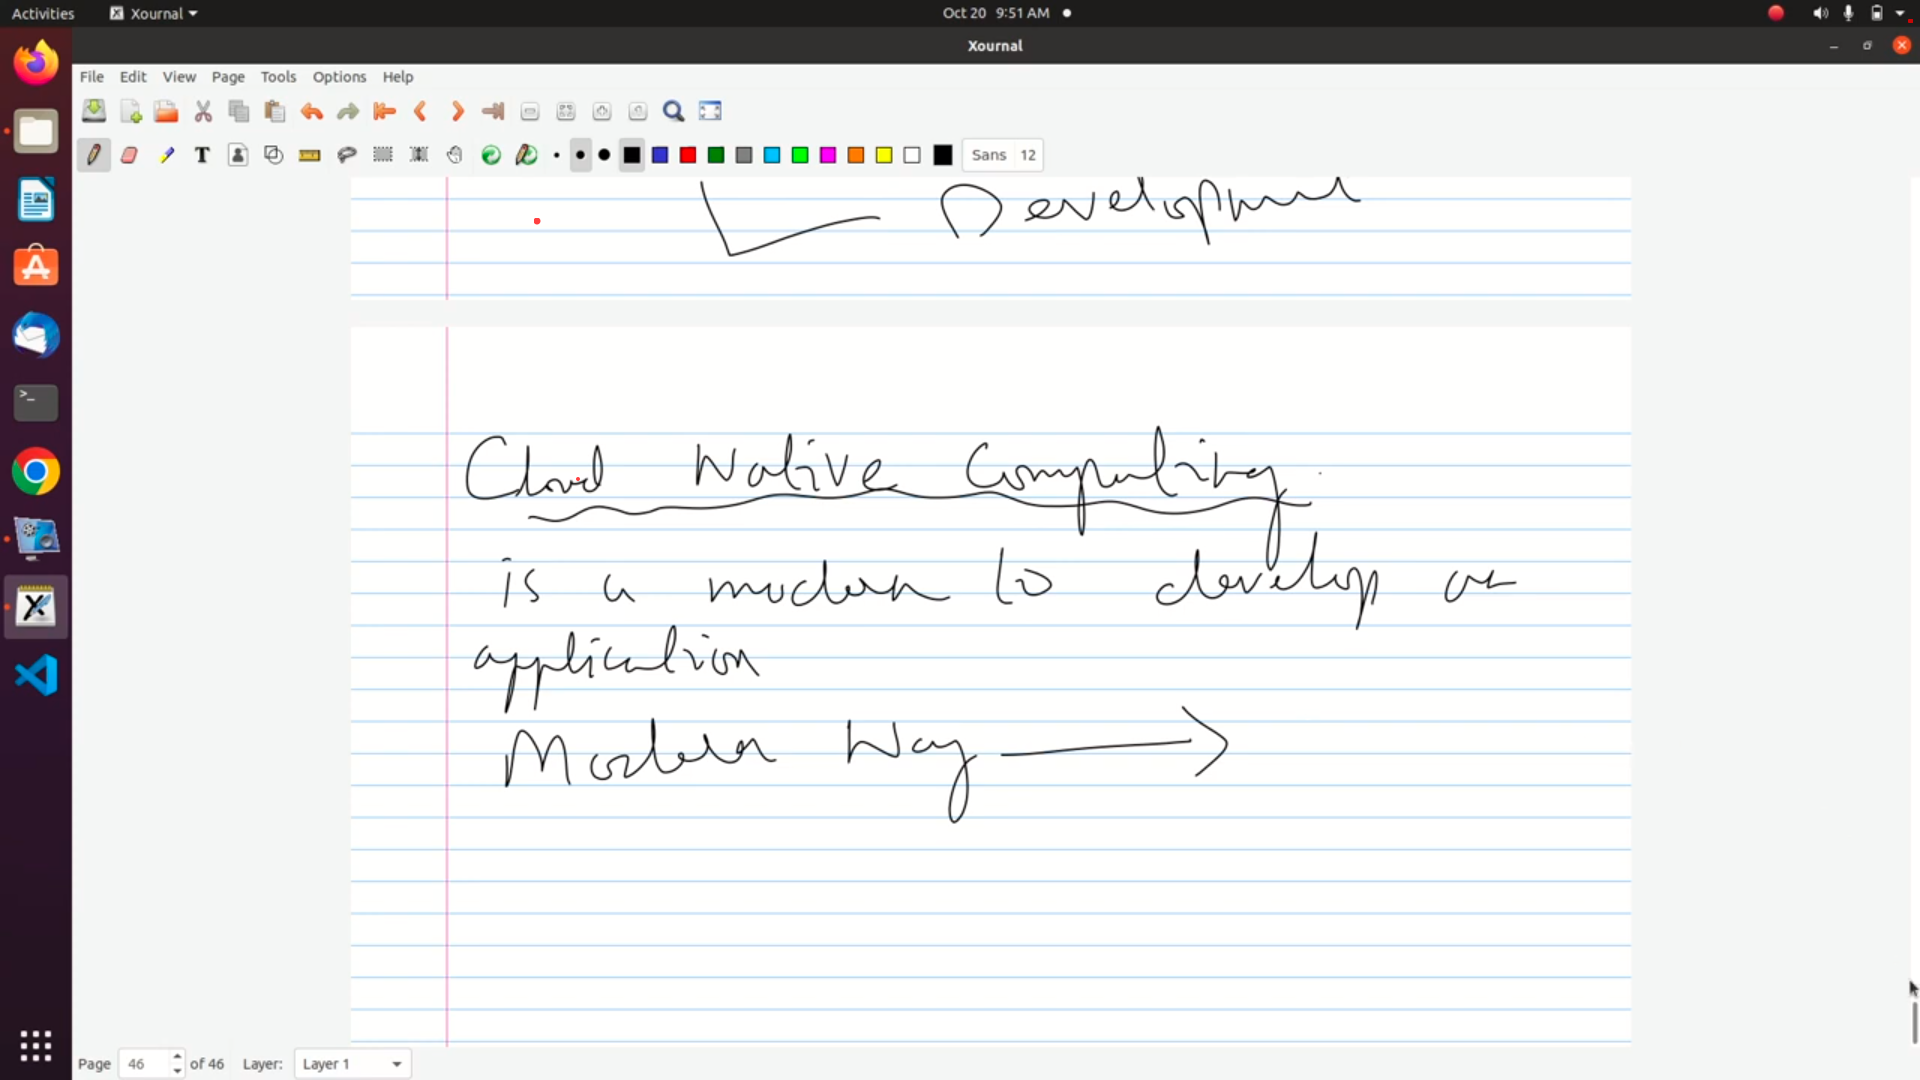 Activities Xournal Oct 20 9:51 AM
Xournal
File Edit View Page Tools Options Help
T Sans 12
Development
Cloud Native Computing
is a modern to develop an
application
Modern Way
Page 46 of 46 Layer: Layer 1